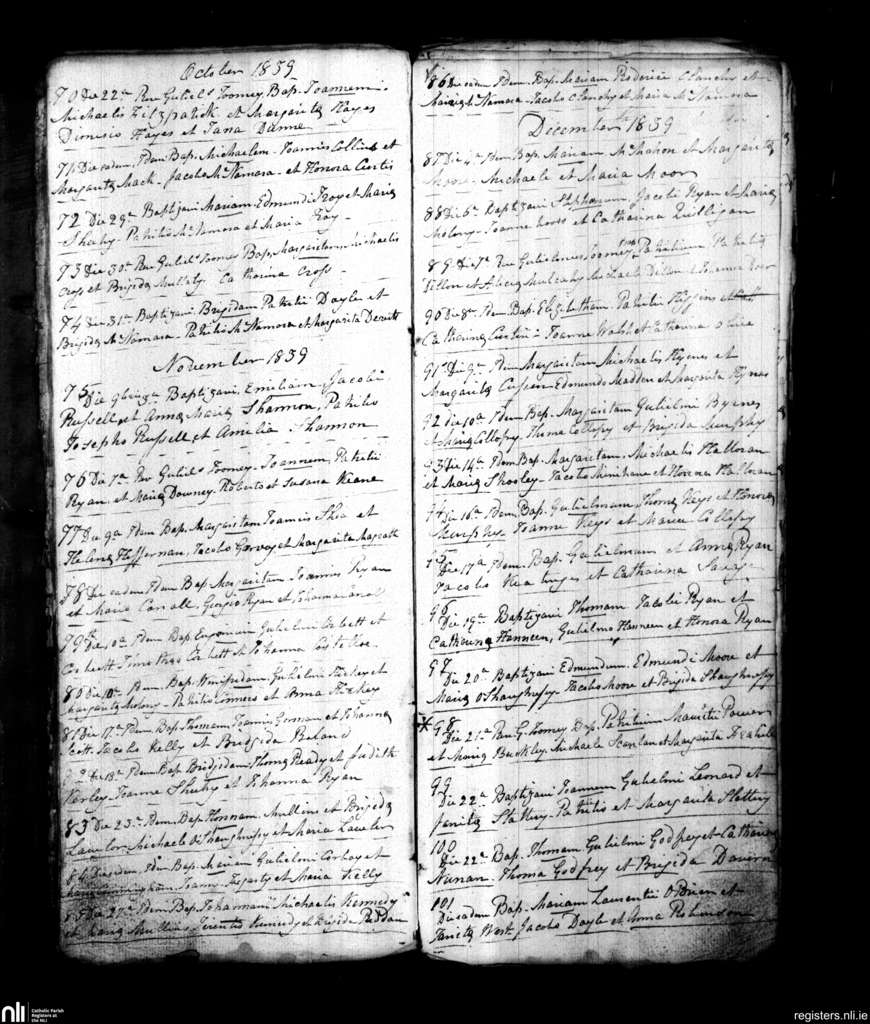 October 1839
70 Die 22a Rev Guliels Toomey Bap. Joannem
Michaelis Fitzpatrick et Margarita Hayes
Dionisio Hayes et Jana Dunne
71 Die eadem Idem Bap. Michaelem Joannis Collins et
Margarita Mack. Jacobo McNamara et Honora Curtis
72 Die 29a Baptizavi Mariam Edmundi Troy et Maria
Shuhy. Patritio McNamara et Maria Troy
73 Die 30a Rev Guliels Toomey Bap. Margaritam Michaelis
Cross et Brigida Catharina Cross
74 Die 31a Baptizavi Brigidam Patritii Doyle et
Brigida McNamara. Patritio McNamara et Margarita
November 1839
75
Die Baptizavi Emiliam Jacobi
Russell et Anna Maria Shannon, Patritio
Josepho Russell et Amelia Shannon
76 Die 7a Rev Guliels Toomey Joannem, Patritii
Ryan et Maria Downey. Roberto et Susana Keane
77 Die 9a Idem Bap. Margaritam Joannis Shea et
Helena Heffernan, Jacobo Garvey et Margarita Magrath
78 Die eadem Idem Bap. Margaritam Joannis Ryan
et Maria Georgio Ryan et Johanna
79 Die 10a Idem Bap Gulielmi Corbett et
Corbett Timotheo Corbett et Johanna
80 Die 10a Idem Bap. Winifredam Gulielmi Hickey et
Margarita Molony. Patritio Conners et Anna Hickey
81 Die 17a Idem Bap. Thomam Joannis Gorman et Johanna
Scott. Jacobo Kelly et Bridgida
Die 18a Idem Bap. Bridgidam Thoma Ready et Judith
Joanne Shuhy et Johanna Ryan
83 Die 23a Idem Bap. Honnam Mullins et Brigida
Lawlor Michaele OShaughnessy et Maria Lawlor
84 Die eadem Idem Bap. Mariam Gulielmi Corboy et
Cunningham Joanne Fogarty et Maria Kelly
85 Die 27a Idem Bap. Johannam Michaelis Kennedy
et Maria Mullins Terentio Kennedy et Brigida Peddan
86 Die eadem Idem Bap. Mariam Roderici Clanchy et
Maria McNamara Jacobo Clanchy et Maria McNamara
December 1839
87 Die 4a Idem Bap. Mariam McMahon et Margarita
Moore. Michaele et Maria Moore
88 Die 6a Baptizavi Stephanum, Jacobi Ryan et Maria
Molony. Joanne et Catharina Quilligan
89 Die 7a Rev Gulielmus Toomey Bap Patritium Patritii
Dillon et Alicia Mulcahy Michaele Dillon et Joanna
90 Die 8a Idem Bap. Elizabetham Patritii Higgins et
Catharina Curtin Joanne Walsh et Catharina
91 Die 9a Idem Margaritam Michaelis Hynes et
Margarita Cusseen Edmundo Madden et Margarita Hynes
92 Die 10a Idem Bap. Margaritam Gulielmi Byrnes
et Maria Collopy, Thoma Collopy et Brigida Murphy
93 Die 14a Idem Bap. Margaritam, Michaelis Halloran
et Maria Shooley. Jacobo Minihane et Honora Halloran
94
Die 16a Idem Bap. Gulielmum Thoma Keys et Honora
Murphy Joanne Keys et Maria Collopy
95
Die 17a Idem Bap. Gulielmum et Anna Ryan
Jacobo Keatinges et Catharina Savage
96
Die 19a Baptizavi Thomam Jacobi Ryan et
Catharina Hanneen, Gulielmo Hanneen et Honora Ryan
97
Die 20a Baptizavi Edmundum Edmundi Moore et
Maria OShaughnessy Jacobo Moore et Brigida Shaughnessy
98
Die 21a Rev G. Toomey Bap. Patritium Mauritii Power
et Maria Buckley. Michaele Scanlan et Margarita
99
Die 22a Baptizavi Joannem Gulielmi Leonard et
Janita Slattery. Patritio et Margarita Slattery
100
Die 22a Bap. Thomam Gulielmi Godfrey et Catharina
Nunan. Thoma Godfrey et Brigida
101
Die eadem Bap. Mariam Laurentii OBrien et
Janita West. Jacobo Doyle et Anna Robinson
nli
Catholic Parish
Registers at
the NLI
registers.nli.ie